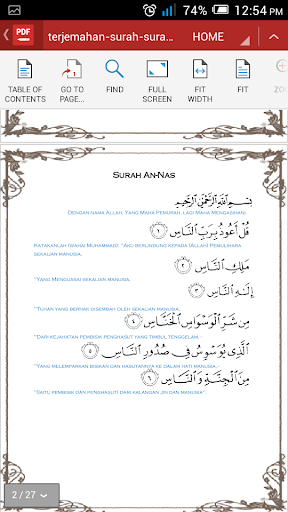 74% 12:54 PM
PDF terjemahan-surah-sura... HOME
TABLE OF CONTENTS
GO TO PAGE...
FIND
FULL SCREEN
FIT WIDTH
FIT
ZOO
Surah An-Nas
بِسْمِ اللَّهِ الرَّحْمَٰنِ الرَّحِيمِ
Dengan nama Allah, Yang Maha Pemurah, lagi Maha Mengasihani.
قُلْ أَعُوذُ بِرَبِّ النَّاسِ ١
Katakanlah (wahai Muhammad): "Aku berlindung kepada (Allah) Pemulihara
sekalian manusia.
مَلِكِ النَّاسِ ٢
"Yang Menguasai sekalian manusia,
إِلَٰهِ النَّاسِ ٣
"Tuhan yang berhak disembah oleh sekalian manusia,
مِن شَرِّ الْوَسْوَاسِ الْخَنَّاسِ ٤
"Dari kejahatan pembisik penghasut yang timbul tenggelam,-
الَّذِي يُوَسْوِسُ فِي صُدُورِ النَّاسِ ٥
"Yang melemparkan bisikan dan hasutannya ke dalam hati manusia,-
مِنَ الْجِنَّةِ وَالنَّاسِ ٦
"(Iaitu pembisik dan penghasut) dari kalangan jin dan manusia".
2 / 27